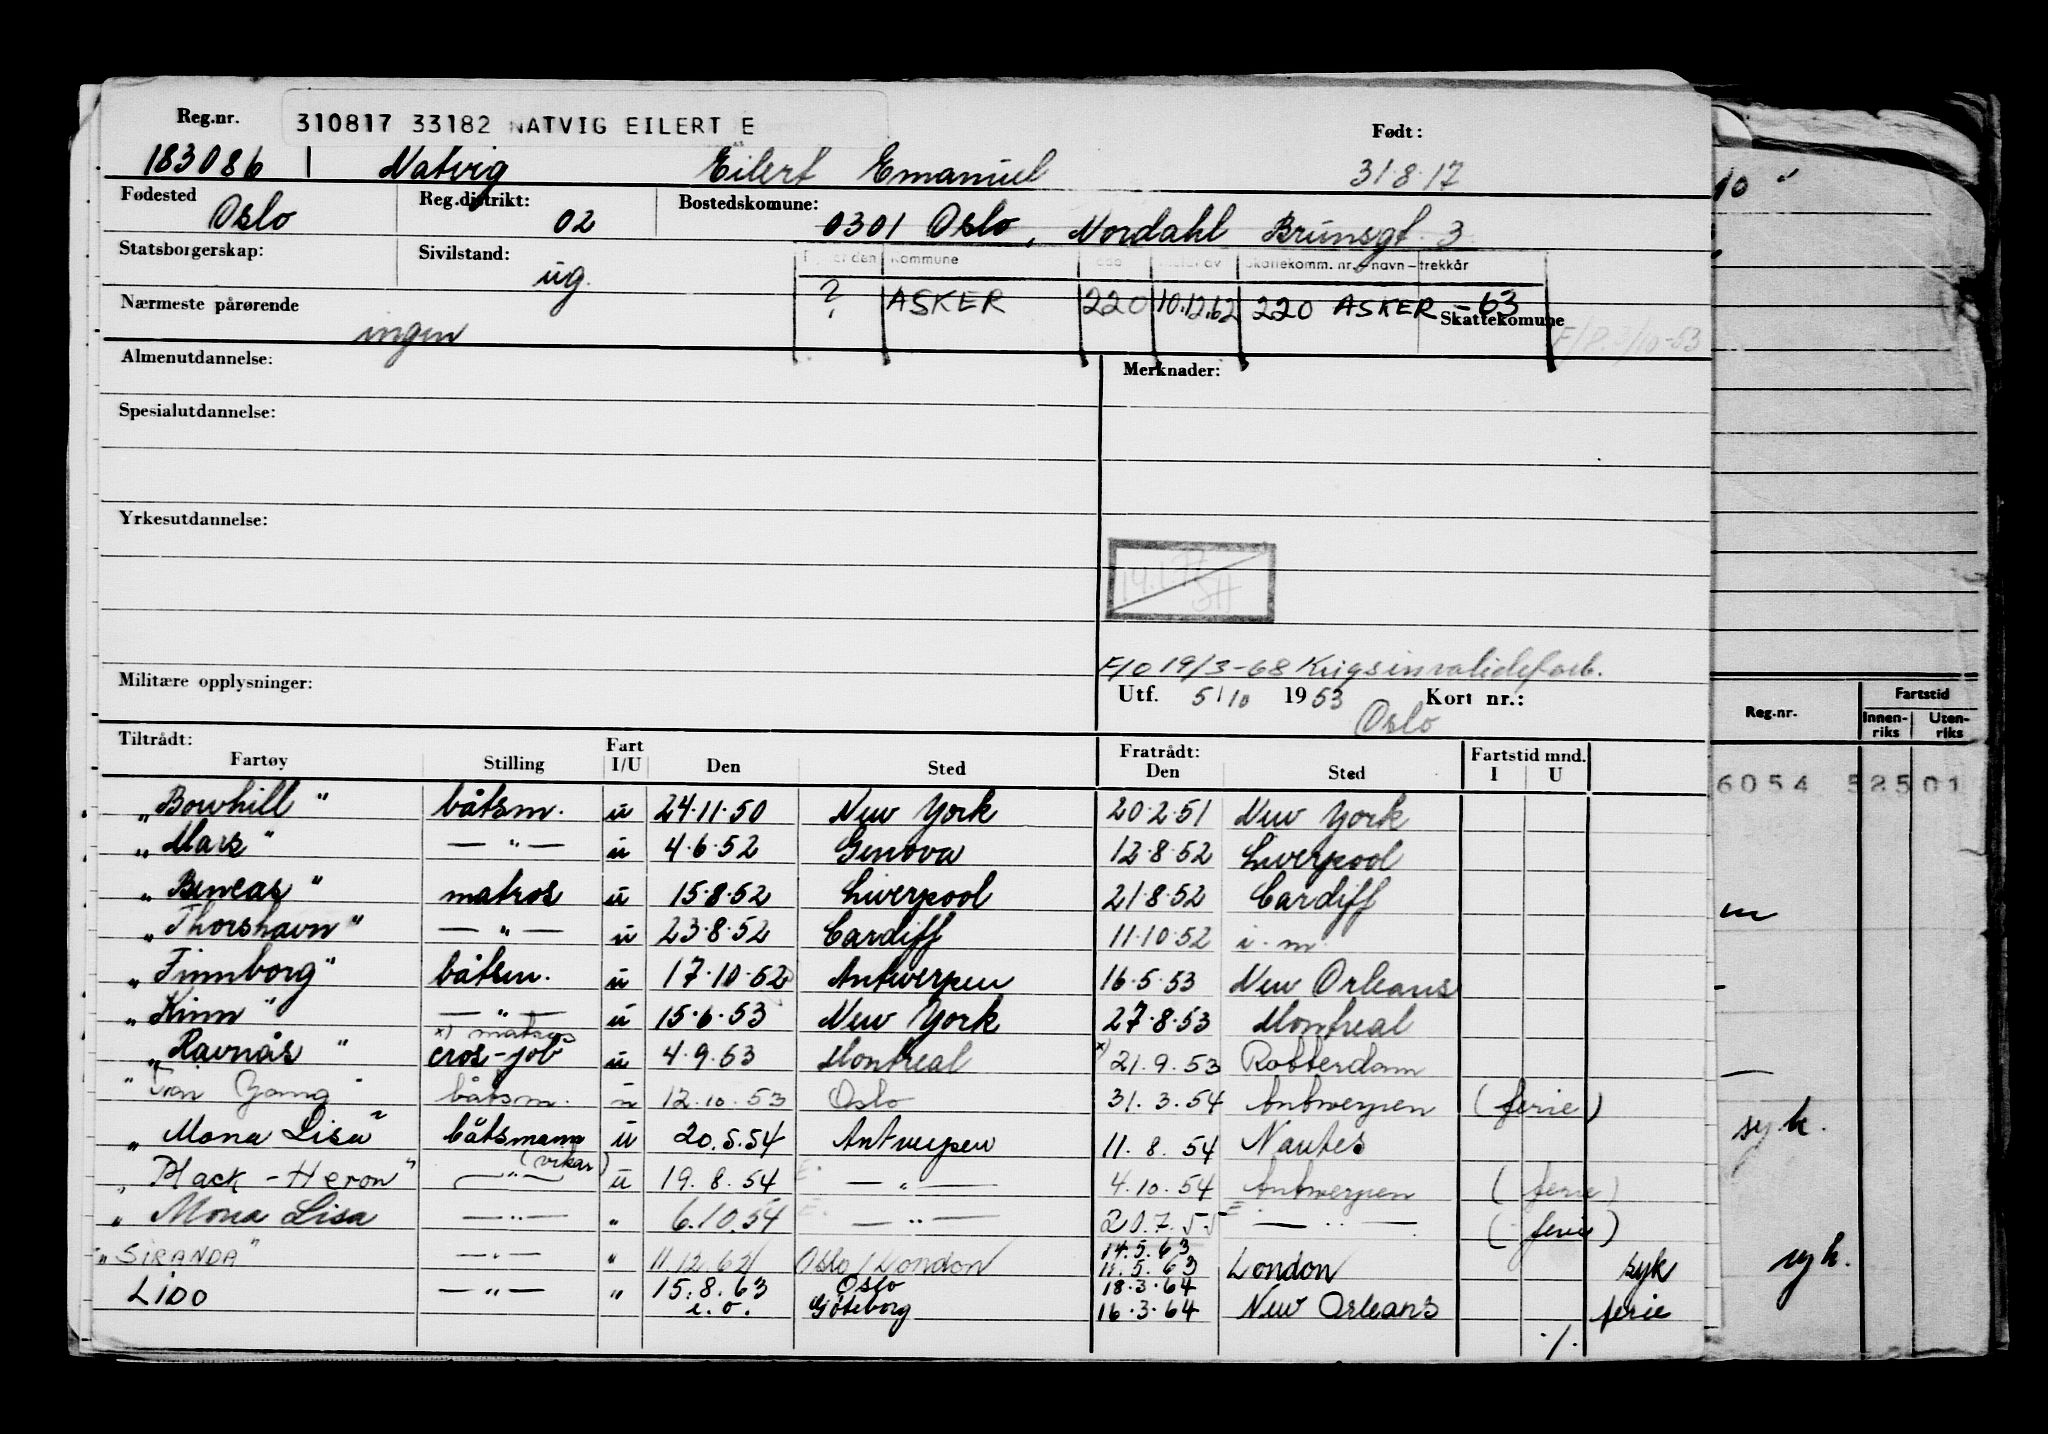 Reg.nr. 310817 33182 NATVIG EILERT E Født:
183086 1 Natvig Eilert Emanuel 31.8.17
Fødested Oslo Reg.distrikt: 02 Bostedskomune: 0301 Oslo, Nordahl Brunsgt. 3
Statsborgerskap: Sivilstand: ug. Kommune Skattekomm. nr. - navn - trekkår
Nærmeste pårørende ingen ? ASKER 220 10.12.62 220 ASKER - 63 Skattekomune
Almenutdannelse: Merknader:
Spesialutdannelse:
Yrkesutdannelse:
F/O 19/3-68 Krigsinvalideforb.
Militære opplysninger: Utf. 5/10 1953 Kort nr.:
Oslo
Tiltrådt: Fart Fratrådt: Fartstid mnd.
Fartøy Stilling I/U Den Sted Den Sted I U
"Bowhill" båtsm. u 24.11.50 New York 20.2.51 New York
"Mars" — " — u 4.6.52 Genova 12.8.52 Liverpool
"Bineas" matros u 15.8.52 Liverpool 21.8.52 Cardiff
"Thorshavn" — " — u 23.8.52 Cardiff 11.10.52 i.m.
"Finnborg" båtsm. u 17.10.52 Antwerpen 16.5.53 New Orleans
"Kinn" — " — u 15.6.53 New York 27.8.53 Montreal
x) matros
"Ravnås" cros-job u 4.9.53 Montreal x) 21.9.53 Rotterdam
"Tai Yang" båtsm. u 12.10.53 Oslo 31.3.54 Antwerpen (ferie)
"Mona Lisa" båtsmann u 20.5.54 Antwerpen 11.8.54 Nantes
(vikar)
"Black-Heron" — " — u 19.8.54 — " — 4.10.54 Antwerpen (ferie)
" Mona Lisa — " — " 6.10.54 — " — 20.7.55 — " — (ferie)
"SIRANDA" — " — " 11.12.62 Oslo/London 14.5.63
11.5.63 London syk
LIDO — " — " 15.8.63 Oslo 18.3.64
i.o. Göteborg 16.3.64 New Orleans ferie
./.
10 "
Reg.nr. Fartstid
Innenriks Utenriks
6054 52501
m
syk.
syk.